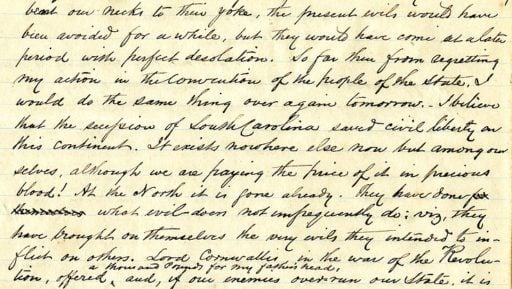 bent our necks to their yoke, the present evils would have
been avoided for a while, but they would have come at a later
period with perfect desolation. So far then from regretting
my action in the Convention of the people of the State, I
would do the same thing over again tomorrow. - I believe
that the secession of South Carolina saved civil liberty on
this continent. It exists nowhere else now but among our
selves, although we are paying the price of it in precious
blood! At the North it is gone already. They have done
what evil-doers not unfrequently do; viz, they
have brought on themselves the very evils they intended to in-
flict on others. Lord Cornwallis, in the war of the Revolu-
a thousand pounds for my father's head,
tion, offered, and, if our enemies over-run our State, it is